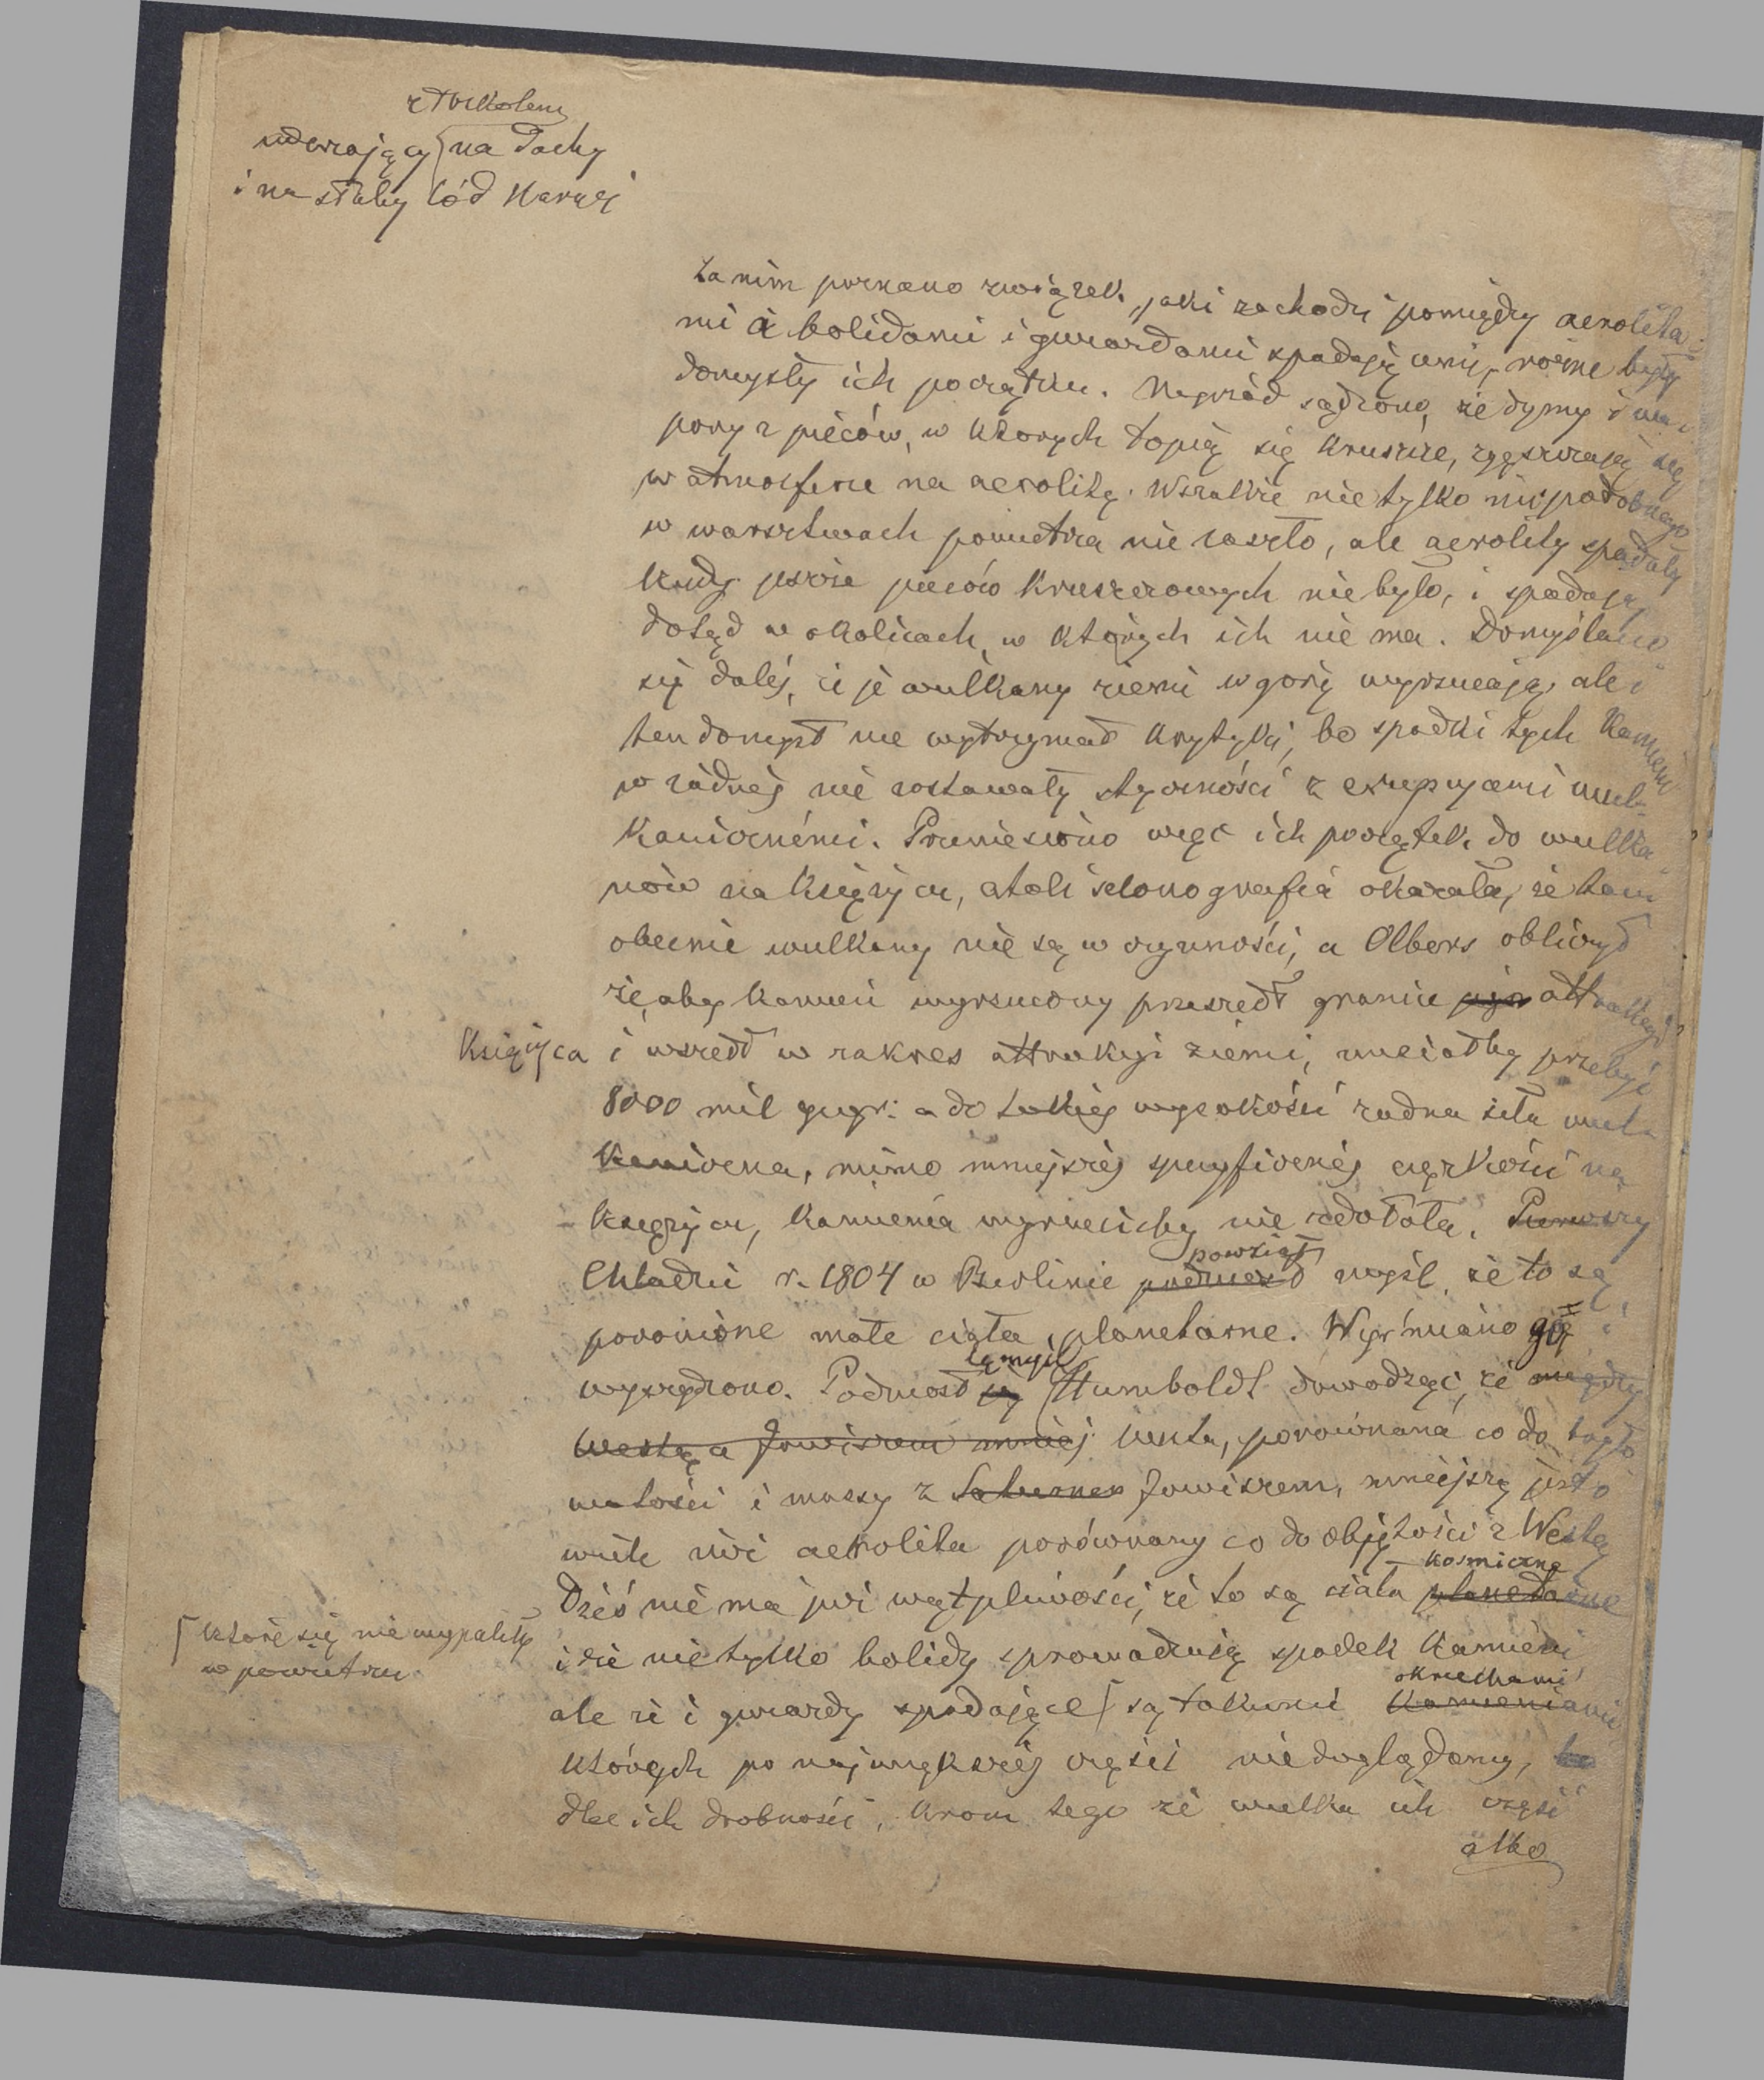 z trzaskiem
uderzający na dachy
i na słaby lód Narwi
Zanim poznano związek, jaki zachodzi pomiędzy aerolita-
mi a bolidami i gwiazdami spadającemi, różne były
domysły ich początku. Naprzód sądzono, że dymy i wa-
pory z pieców, w których topią się kruszce, zgęszczają się
w atmosferze na aerolity. Wszakże nie tylko nic podobnego
w warsztwach powietrza nie zaszło, ale aerolity spadały
kiedy jeszcze pieców kruszcowych nie było, i spadają
dotąd w okolicach, w których ich nie ma. Domyślano
się daléj, iż je wulkany ziemi w górę wyrzucają, ale i
ten domysł nie wytrzymał krytyki, bo spadki tych kamieni
w żadnéj nie zostawały styczności z erupcyami wul-
kanicznémi. Przeniesiono więc ich początek do wulka-
nów na księżycu, atoli selonografia okazała, że tam
obecnie wulkany nie są w czynności, a Olbers obliczył
że, aby kamień wyrzucony przeszedł granice jego attrakcyi
Księżyca i wszedł w zakres attrakcyi ziemi, musiałby przebyć
8000 mil geogr: a do takiéj wysokości żadna siła wul-
kaniczna, mimo mniejszéj specyficznéj ciężkości na
księżycu, kamienia wyrzucićby nie zdołała. Pierwszy
powziął
Chladni r. 1804 w Berlinie podniósł myśl, że to są
poronione małe ciała planetarne. Wyśmiano go i
tę myśl
wyszydzono. Podniósł ją Humboldt dowodząc, że między
Westą a Jowiszem mniej Westa, porównana co do obję-
tości i massy z Saturnem Jowiszem, mniejszą jest o
wiele niż aerolita porównany co do objętości z Westą
kosmiczne
Dziś nie ma już wątpliwości, że to są ciała planetarne
[które się nie wypaliły
w powietrzu
i że nie tylko bolidy sprowadzają spadek kamieni
okruchami
ale że i gwiazdy spadające [ są takiemi kamieniami
których po największéj części nie doglądamy, bo
dla ich drobności, krom tego że wielka ich część
albo